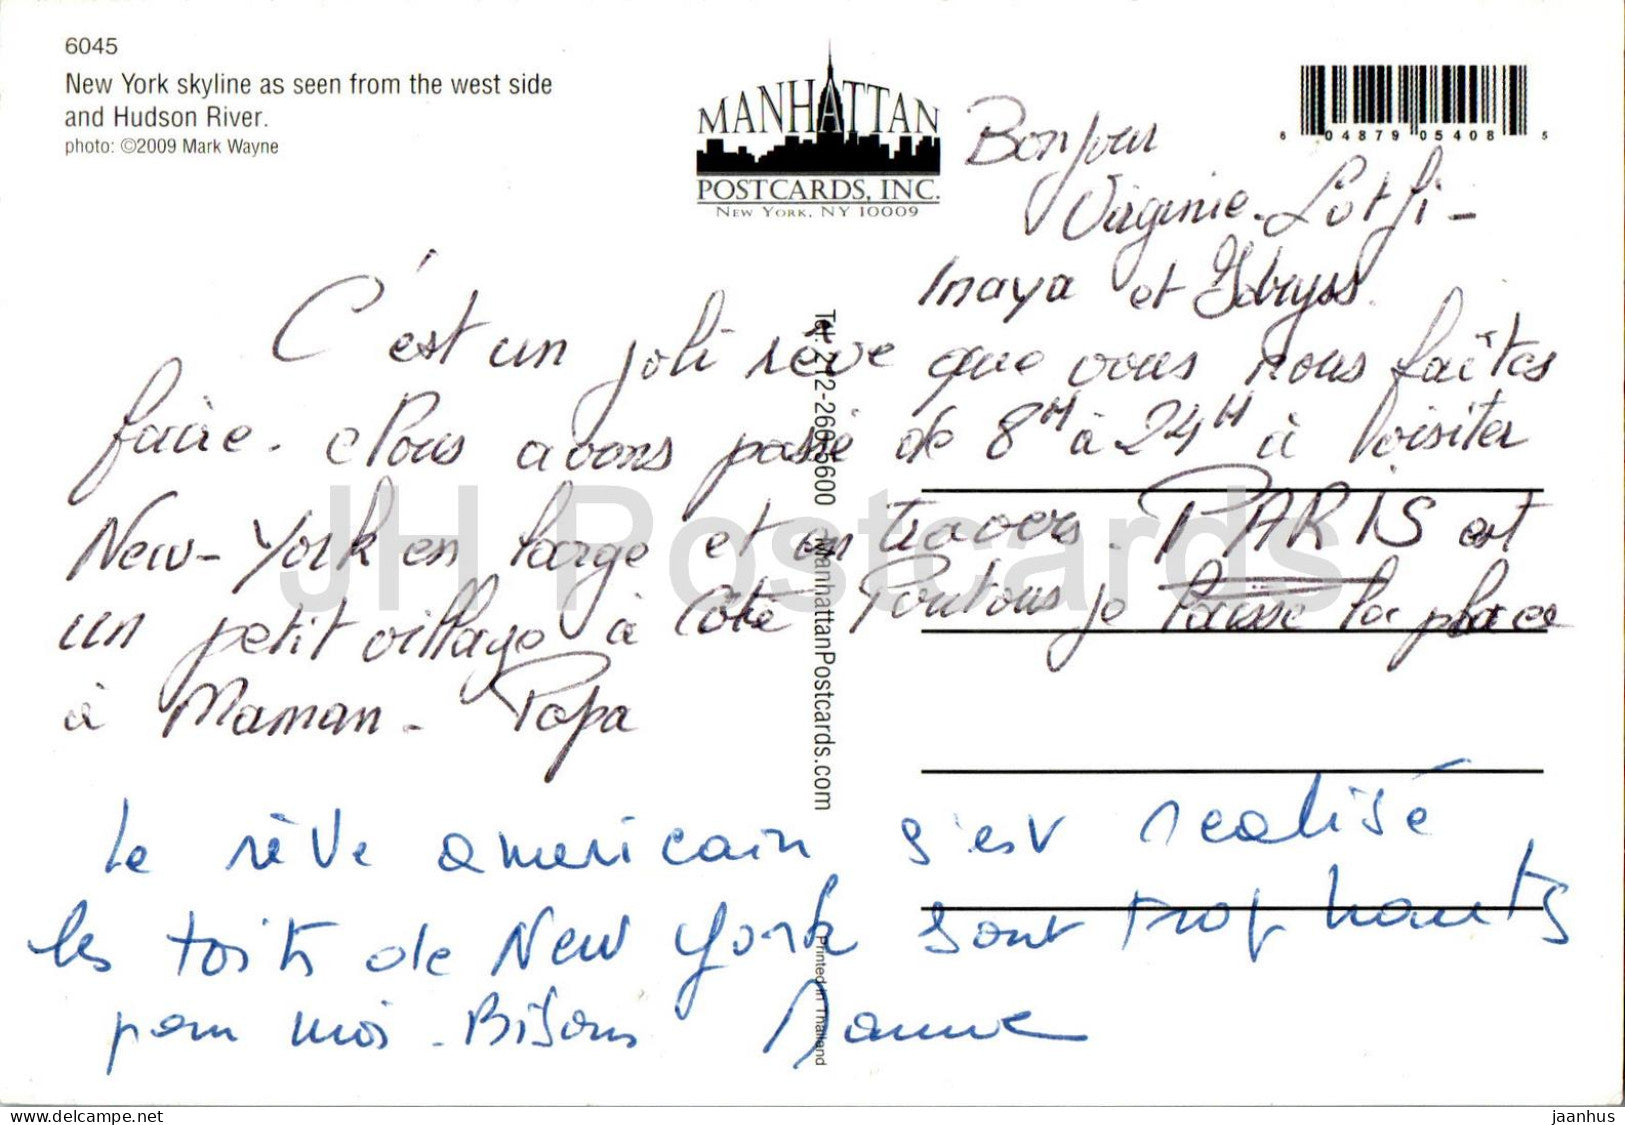 6045
New York skyline as seen from the west side
and Hudson River.
photo: ©2009 Mark Wayne
MANHATTAN
POSTCARDS, INC.
NEW YORK, NY 10009
6 04879 05408 5
Bonjour
Virginie - Lotfi -
Inaya et Idryss.
C'est un joli rêve que vous nous faîtes
faire. Nous avons passé de 8H à 24H à visiter
New-York en large et en travers. PARIS est
un petit village à côté Partous je laisse la place
à Maman - Papa
Le rêve americain s'est realisé
les toits de New york sont trop hauts
pour moi - Bisous
Tel: 212-260 5600 ManhattanPostcards.com
Printed in Thailand
JH Postcards
delcampe.net
jaanhus